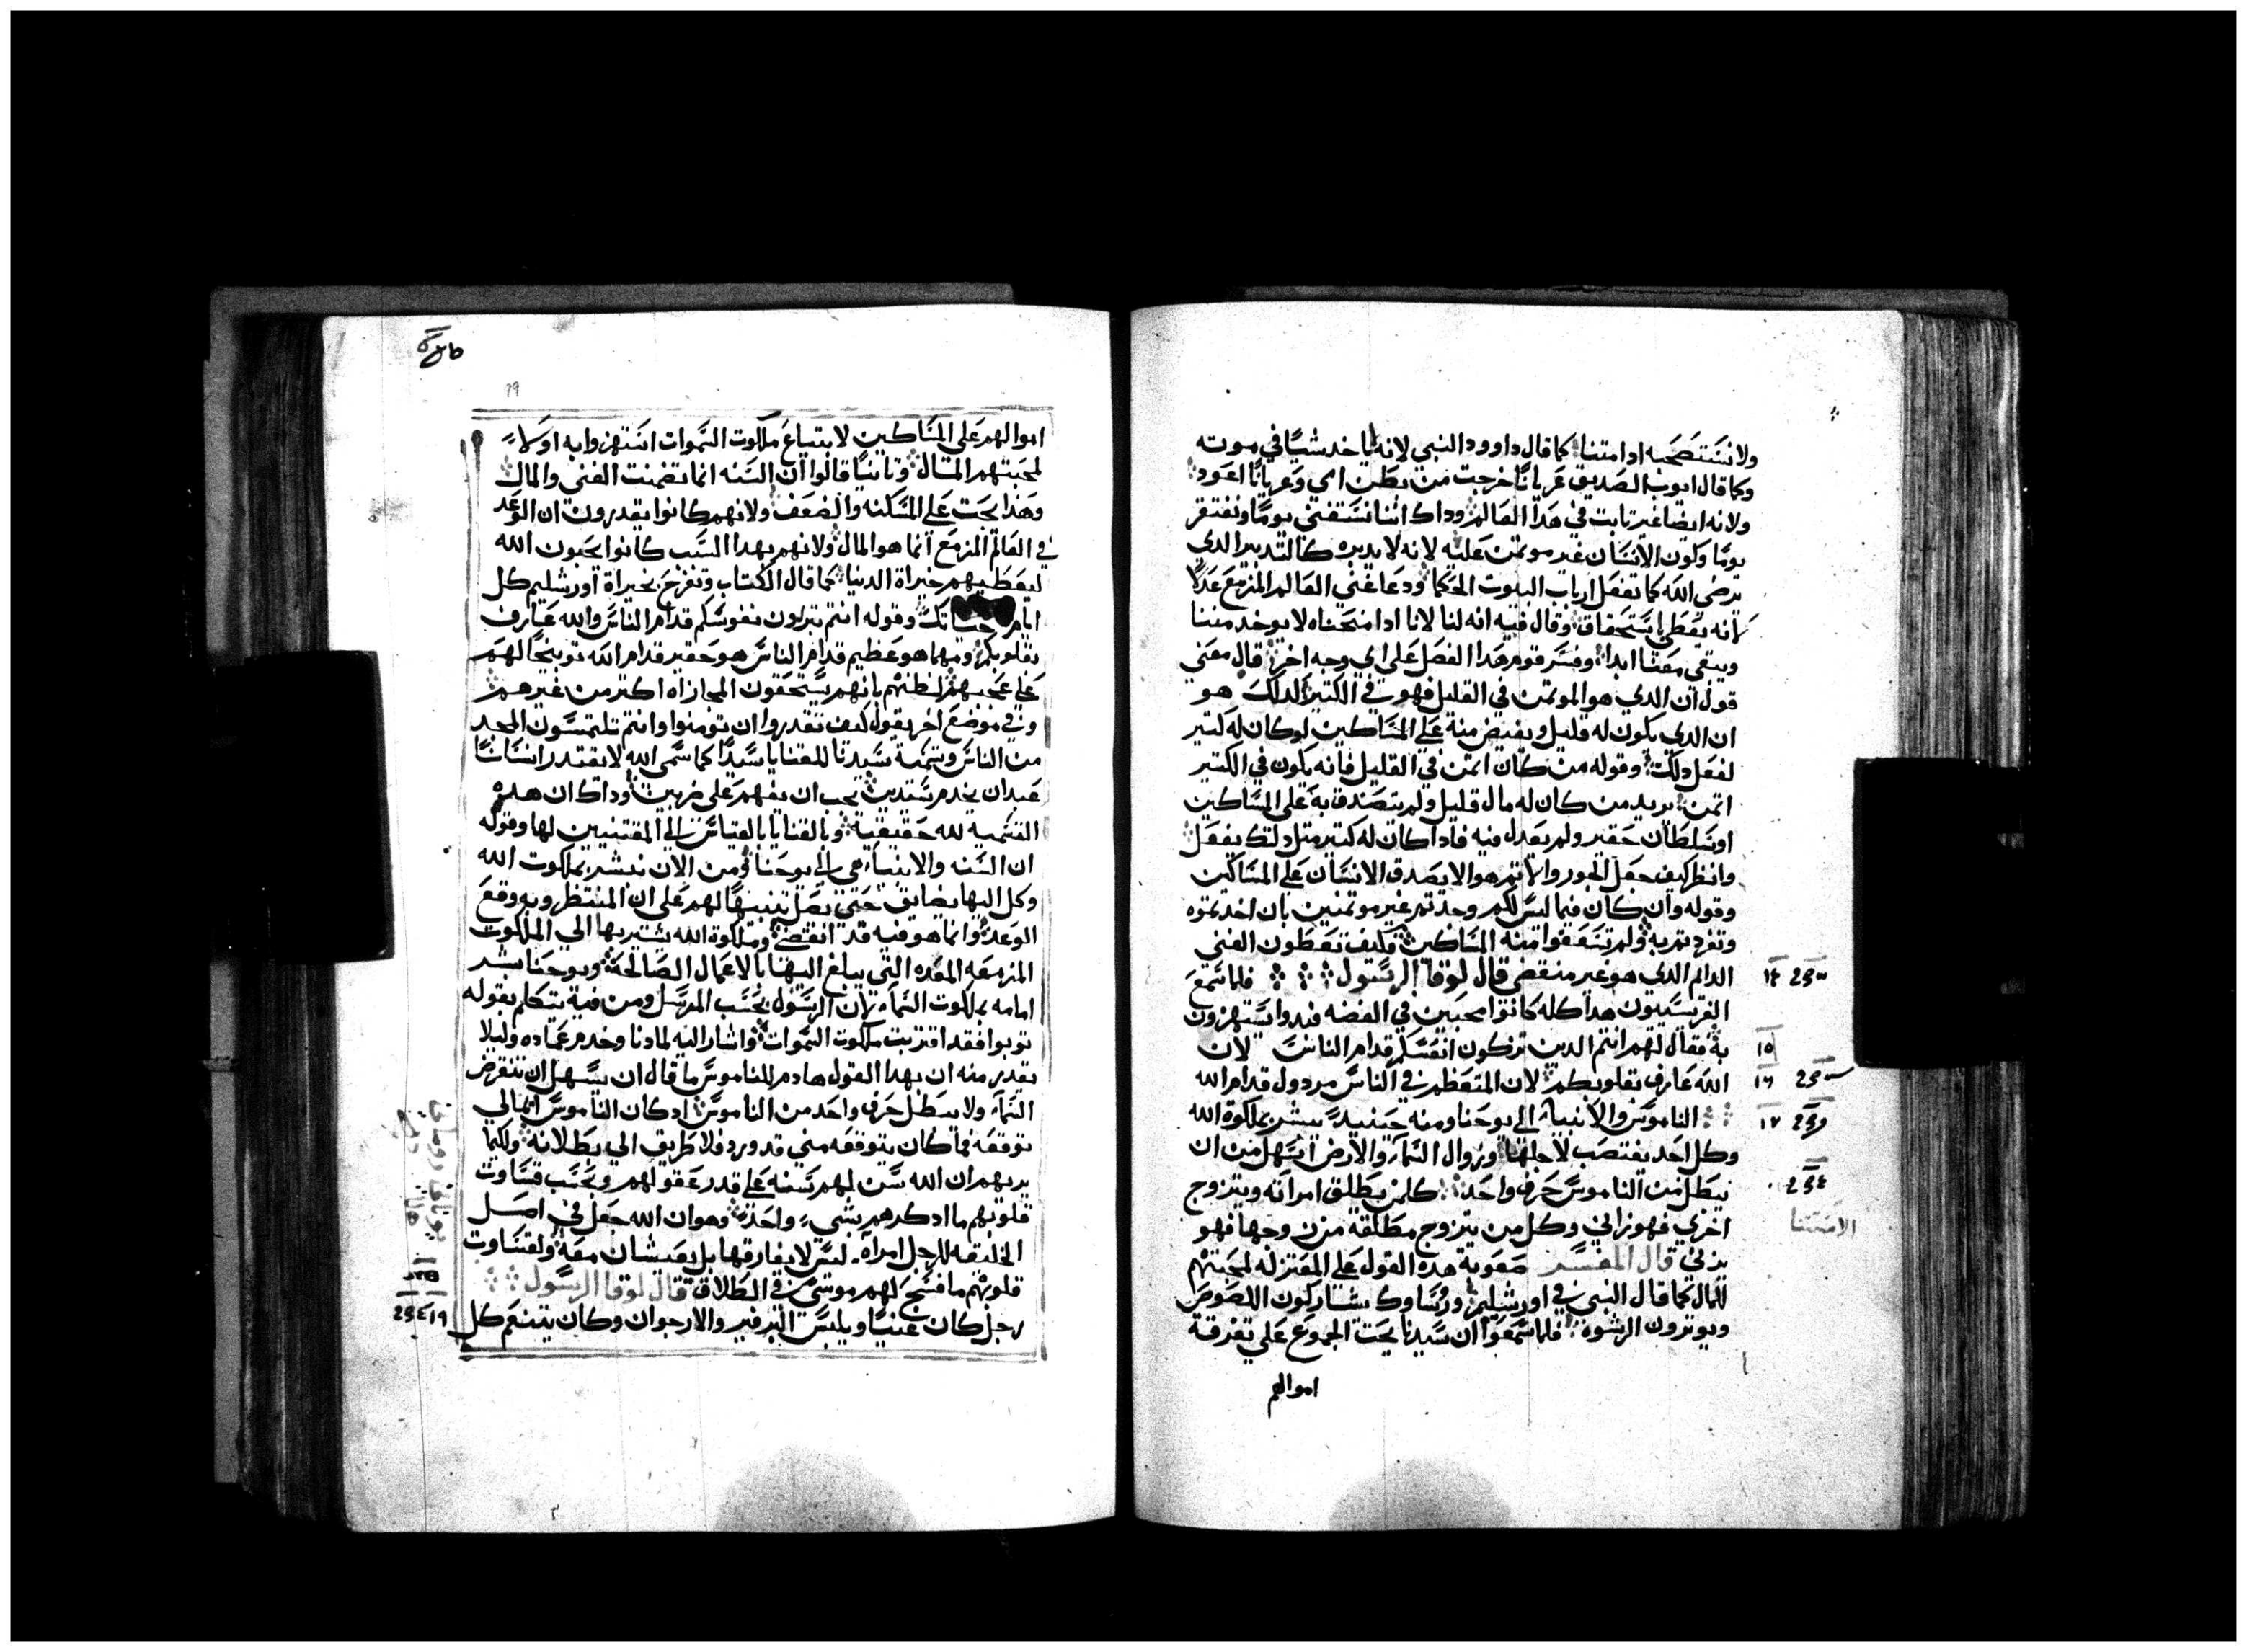 ولا نستصحبه ادا متنا كما قال داوود النبي لانه لا ياخد شيًا في موته
وكما قال ايوب الصديق عريانًا خرجت من بطن امي وعريانًا اعود
ولانه ايضا غير تابت في هدا العالم وداك اننا نستغني يومًا ونفتقر
يومًا وكون الانسان غير موتمن عليه لانه لا يدبره كالتدبير الدي
يرضي الله كما تفعل ارباب البيوت الحكما ودعا غني العالم المزمع عدلًا
لانه يعطي باستحقاق وقال فيه انه لنا لانا ادا منحناه لا يوخد مننا
ويبقى معنا ابدا وفسر قوم هدا الفصل على اي وجه اخر قال معنى
قول ان الدي هو الموتمن في القليل فهو في الكتير كدلك هو
ان الدي يكون له قليل ويفيض منه على المساكين لو كان له كتير
لفعل دلك وقوله من كان اتمن في القليل فانه يكون في الكتير
اتمن يريد من كان له مال قليل ولم يتصدق به على المساكين
او سلطان حقير ولم يعدل فيه فادا كان له كتير متل دلك يفعل
وانظر كيف جعل الجور والاتم هو الا يصدق الانسان على المساكين
وقوله وان كان فيما ليس لكم وجدتم غير موتمنين بان اخدتموه
وتفردتم به ولم تنفقوا منه المساكين فكيف تعطون الغني
الدايم الدي هو غير منقضي قال لوقا الرسول فلما سمع
١٤
الفريسيون هدا كله كانوا محبين في الفضه فبدوا يستهزون
به فقال لهم انتم الدين تزكون انفسكم قدام الناس لان
١٥
الله عارف بقلوبكم لان المتعظم في الناس مردول قدام الله
١٦
الناموس والانبيا الى يوحنا ومنه حينيد يبشر بملكوة الله
١٧
وكل احد يغتصب لاجلها وزوال السماء والارض اسهل من ان
يبطل من الناموس حرف واحد كل من يطلق امراته ويتزوج
اخرى فهو زاني وكل من يتزوج مطلقة من زوجها فهو
يزني قال المفسر صعوبة هده القول على المعتزله لمحبتهم
للمال كما قال النبي في اورشليم وروساوك يشاركون اللصوص
ويوترون الرشوه فلما سمعوا ان سيدنا يحت الجموع على تفرقة
اموالهم
اموالهم على المساكين لابتياع ملكوت السموات استهزوا به اولاً
لمحبتهم المال وتانيًا قالوا ان السنه انما تضمنت الغنى والمال
وهدا يحت على المسكنه والضعف ولانهم كانوا يقدرون ان الوعد
في العالم المزمع انما هو المال ولانهم بهدا السبب كانوا يحبون الله
ليعطيهم خيراة الدنيا كما قال الكتاب وتفرح بخيراة اورشليم كل
ايام حياتك وقوله انتم تبررون نفوسكم قدام الناس والله عارف
بقلوبكم ومهما هو عظيم قدام الناس هو حقير قدام الله توبيخًا لهم
على عجبهم لظنهم بانهم يستحقون المجازاه اكتر من غيرهم
وفي موضع اخر يقول كيف تقدروا ان تومنوا وانتم تلتمسون المجد
من الناس وتسمية سيدنا للقنايا سيدًا كما سمى الله لا يقتدر انسانًا
عبد ان يخدم سيدين يجب ان يفهم على ضربين وداك ان هده
التسميه لله حقيقية وبالقنايا بالقياس الى المقتنيين لها وقوله
ان السنه والانبياء هي الى يوحنا ومن الان نبشر بملكوت الله
وكل اليها يضايق حتى يصل تنبيهًا لهم على ان المنتظر وبه وقع
الوعد وانما هو فيه قد انقضى وملكوة الله يشير بها الى الملكوت
المزمعه المعده التي يبلغ اليها بالاعمال الصالحة ويوحنا بشر
امامه بملكوت السماء لان الرسول بحسب المرسل ومن فيه يتكلم بقوله
توبوا فقد اقتربت ملكوت السموات واشار اليه لما دنا وخدم عماده وليلا
يقدر منه ان بهدا القول هادم للناموس ما قال ان يسهل ان تنقرض
السماء ولا يبطل حرف واحد من الناموس اد كان الناموس انما لي
توقعه فما كان يتوقعه مني قد ورد فلا طريق الى بطلانه ولكيما
يريهم ان الله سن لهم سنه على قدر عقولهم وبحسب قساوت
قلوبهم ما ادكرهم بشيء واحد وهو ان الله جعل في اصل
الخليقه للرجل امراة ليس لا يفارقها بل يعيشان معه ولقساوت
قلوبهم ما فسح لهم موسى في الطلاق قال لوقا الرسول
رجل كان غنيًا ويلبس البرفير والارجوان وكان يتنعم كل
١٩